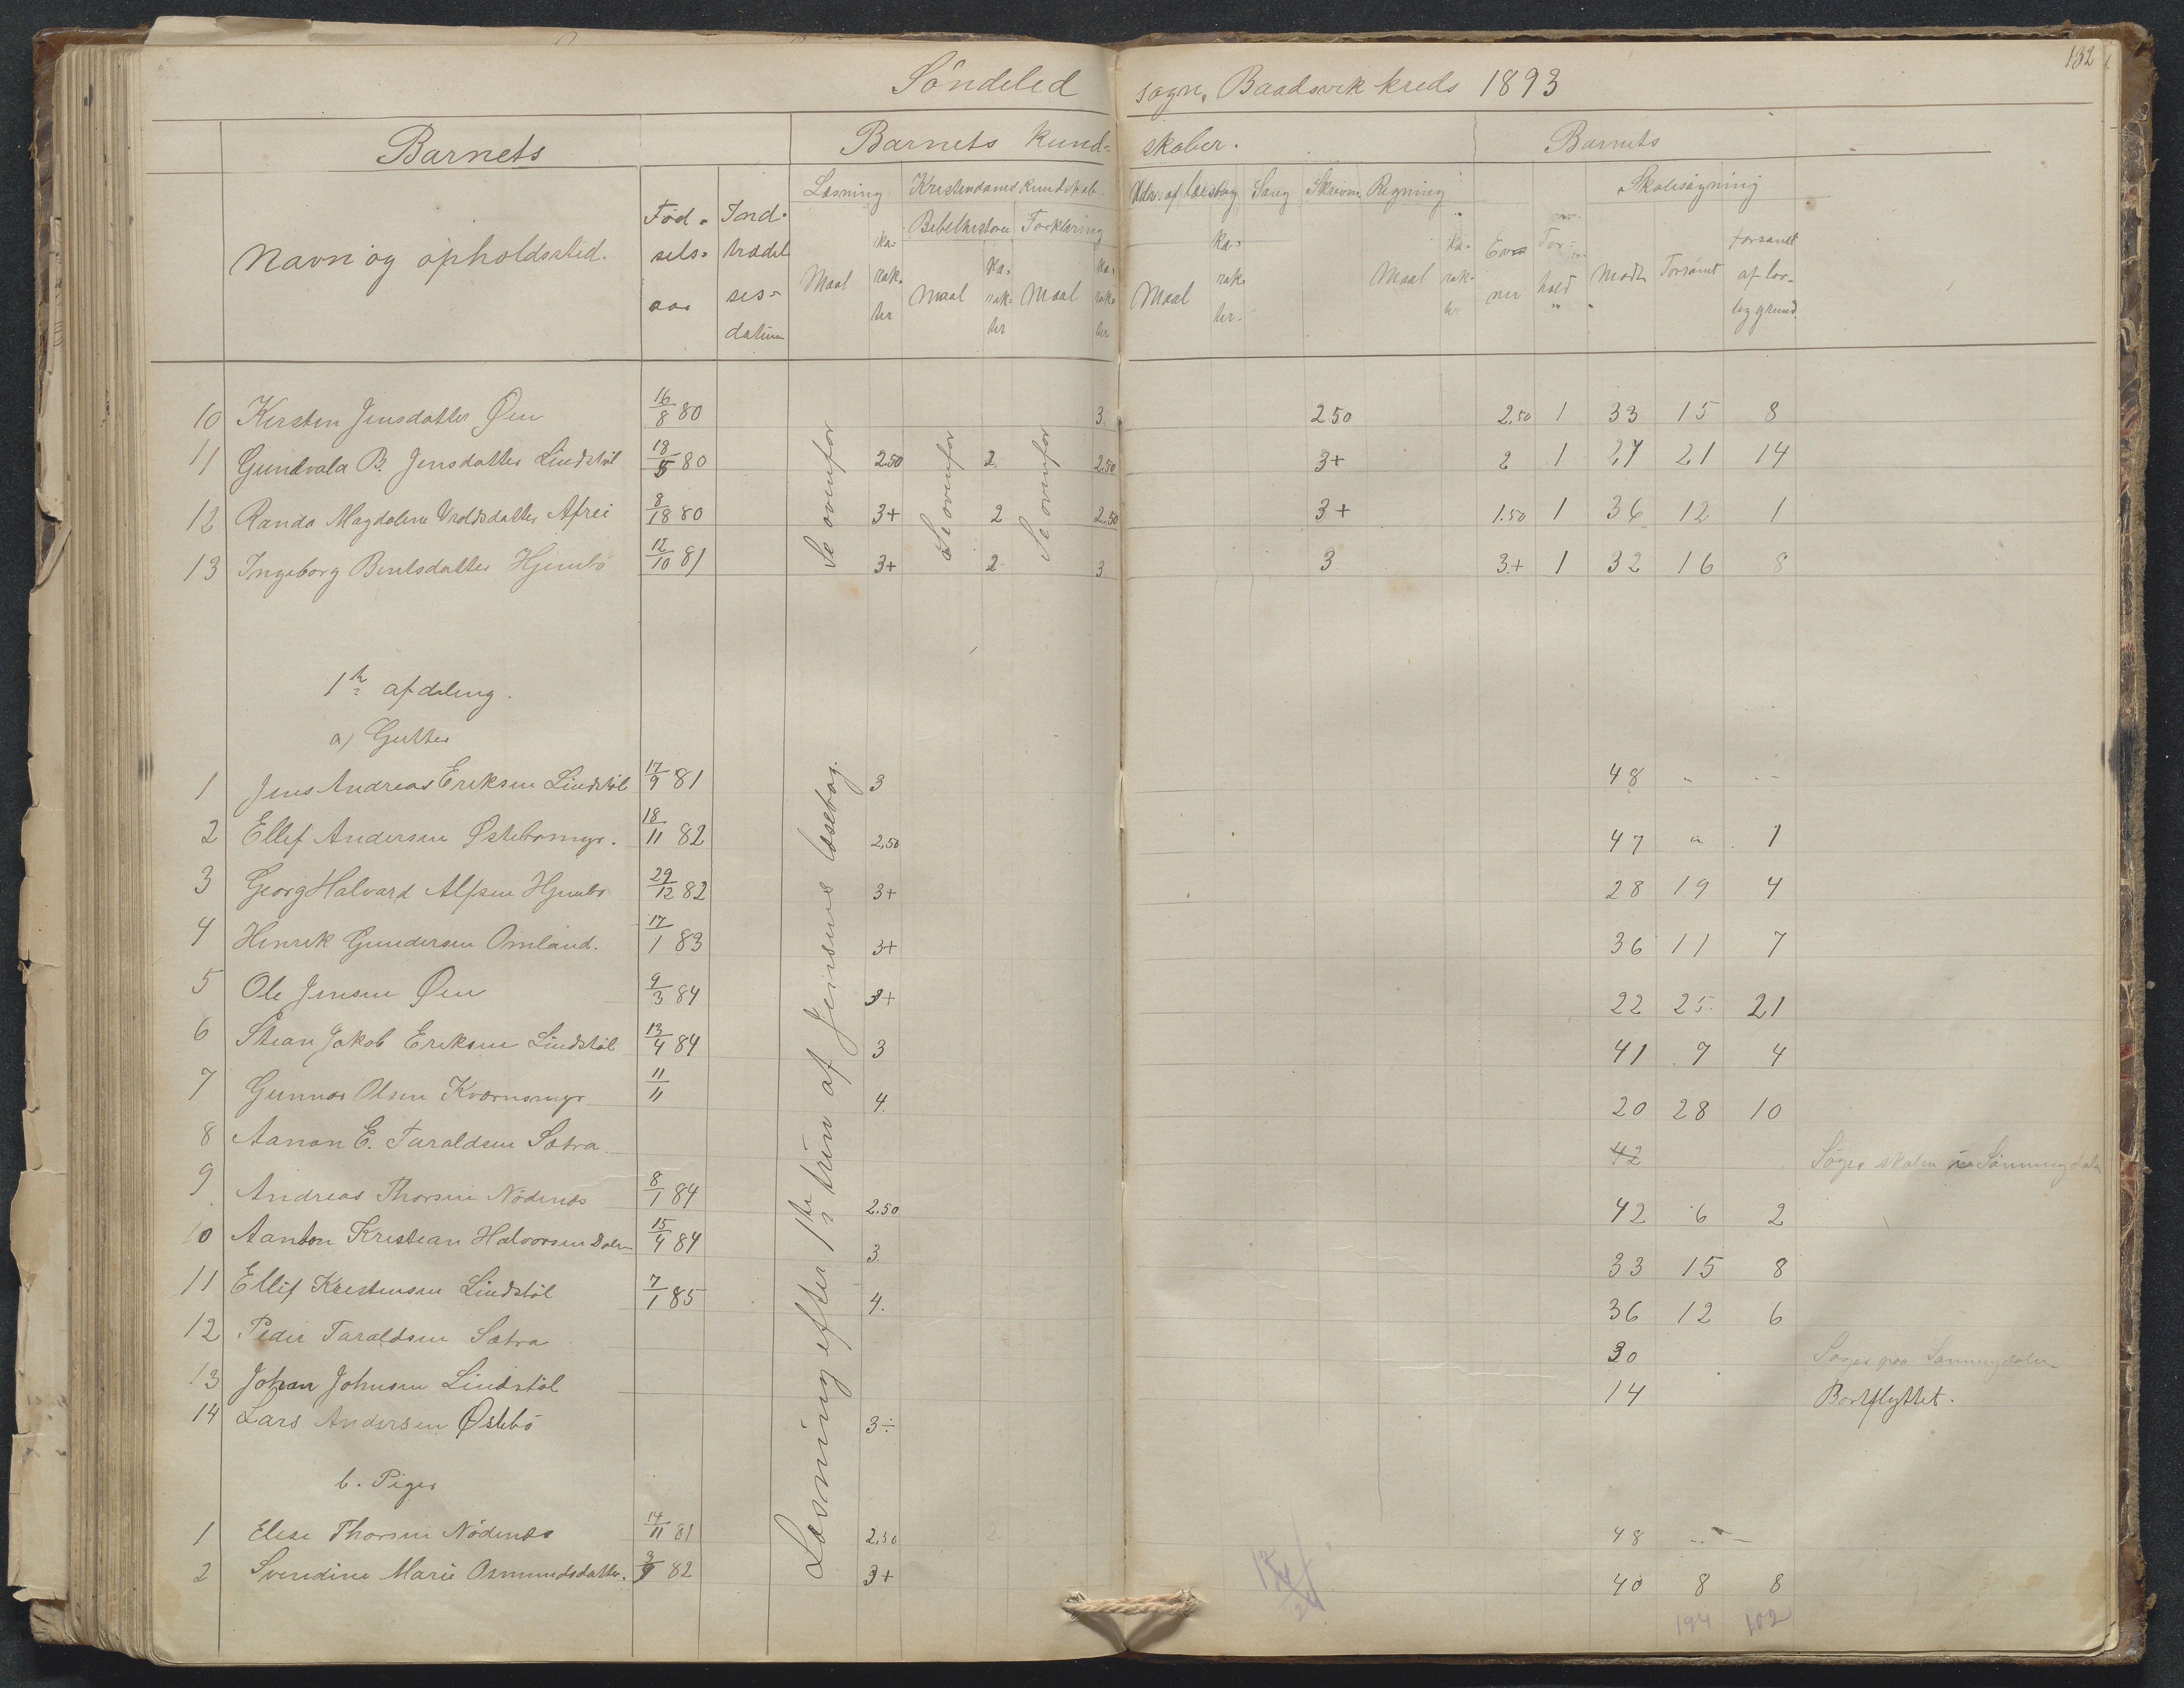 132
Söndeled sogn, Baadsvik kreds 1893
Barnets Barnets kund- skaber. Barnets
Læsning Kristendomskundskab Udv. af læsebog Sang Skrivn Regning Skolesøgning
Navn og opholdssted. Fød- sels- aar Ind- trædel ses- datum
Bibelhistorie Forklaring
Maal ka- rak- ter Maal ka- rak- ter Maal ka- rak- ter Maal ka- rak- ter Maal ka- rak- ter Evner Forhold Mødt Forsømt forsømt af lov- lig grund.
10 Kirsten Jensdatter Øen 16/8 80 3 2 50 2,50 1 33 15 8
11 Gundvala B. Jensdatter Lindstöl 18/5 80 2.50 2. 2.50 3+ 2 1 27 21 14
12 Randa Magdalene Vroldsdatter Afrei 8/18 80 3+ 2 2.50 3+ 1.50 1 36 12 1
13 Ingeborg Bentsdatter Hjembö 12/10 81 3+ 2 3 3 3+ 1 32 16 8
Se ovenfor
Se ovenfor
Se ovenfor
1ste afdeling.
a) Gutter
1 Jens Andreas Eriksen Lindstöl 17/9 81 3 48 " -
2 Ellef Andersen Østebömyr. 18/11 82 2,50 47 " 1
3 Georg Halvard Alfsen Hjembö 29/12 82 3+ 28 19 4
4 Henrik Gundersen Omland. 17/1 83 3+ 36 11 7
5 Ole Jensen Øen 9/3 84 3+ 22 25. 21
6 Stian Jakob Eriksen Lindstöl 13/4 84 3 41 7 4
7 Gunnar Olsen Kværnsmyr 11/11 4. 20 28 10
8 Aanon E. Taraldsen Sætra. 42 Søger skolen
9 Andreas Thorsen Nödenæs 8/1 84 2.50 42 6 2
10 Aanton Kristian Halvorsen Dalen 15/4 84 3. 33 15 8
11 Ellif Kristensen Lindstöl 7/1 85 4. 36 12 6
12 Peder Taraldsen Sætra 30 Søger paa
13 Johan Johnsen Lindstöl 14 Bortflyttet.
14 Lars Andersen Østebö 3÷
Læsning efter 1ste trin af Jensens læsebog.
b. Piger
1 Elise Thorsen Nödenæs 14/11 81 2,50 48 " -
2 Sverdine Marie Osmundsdatter. 3/9 82 3+ 40 8 8
194 102